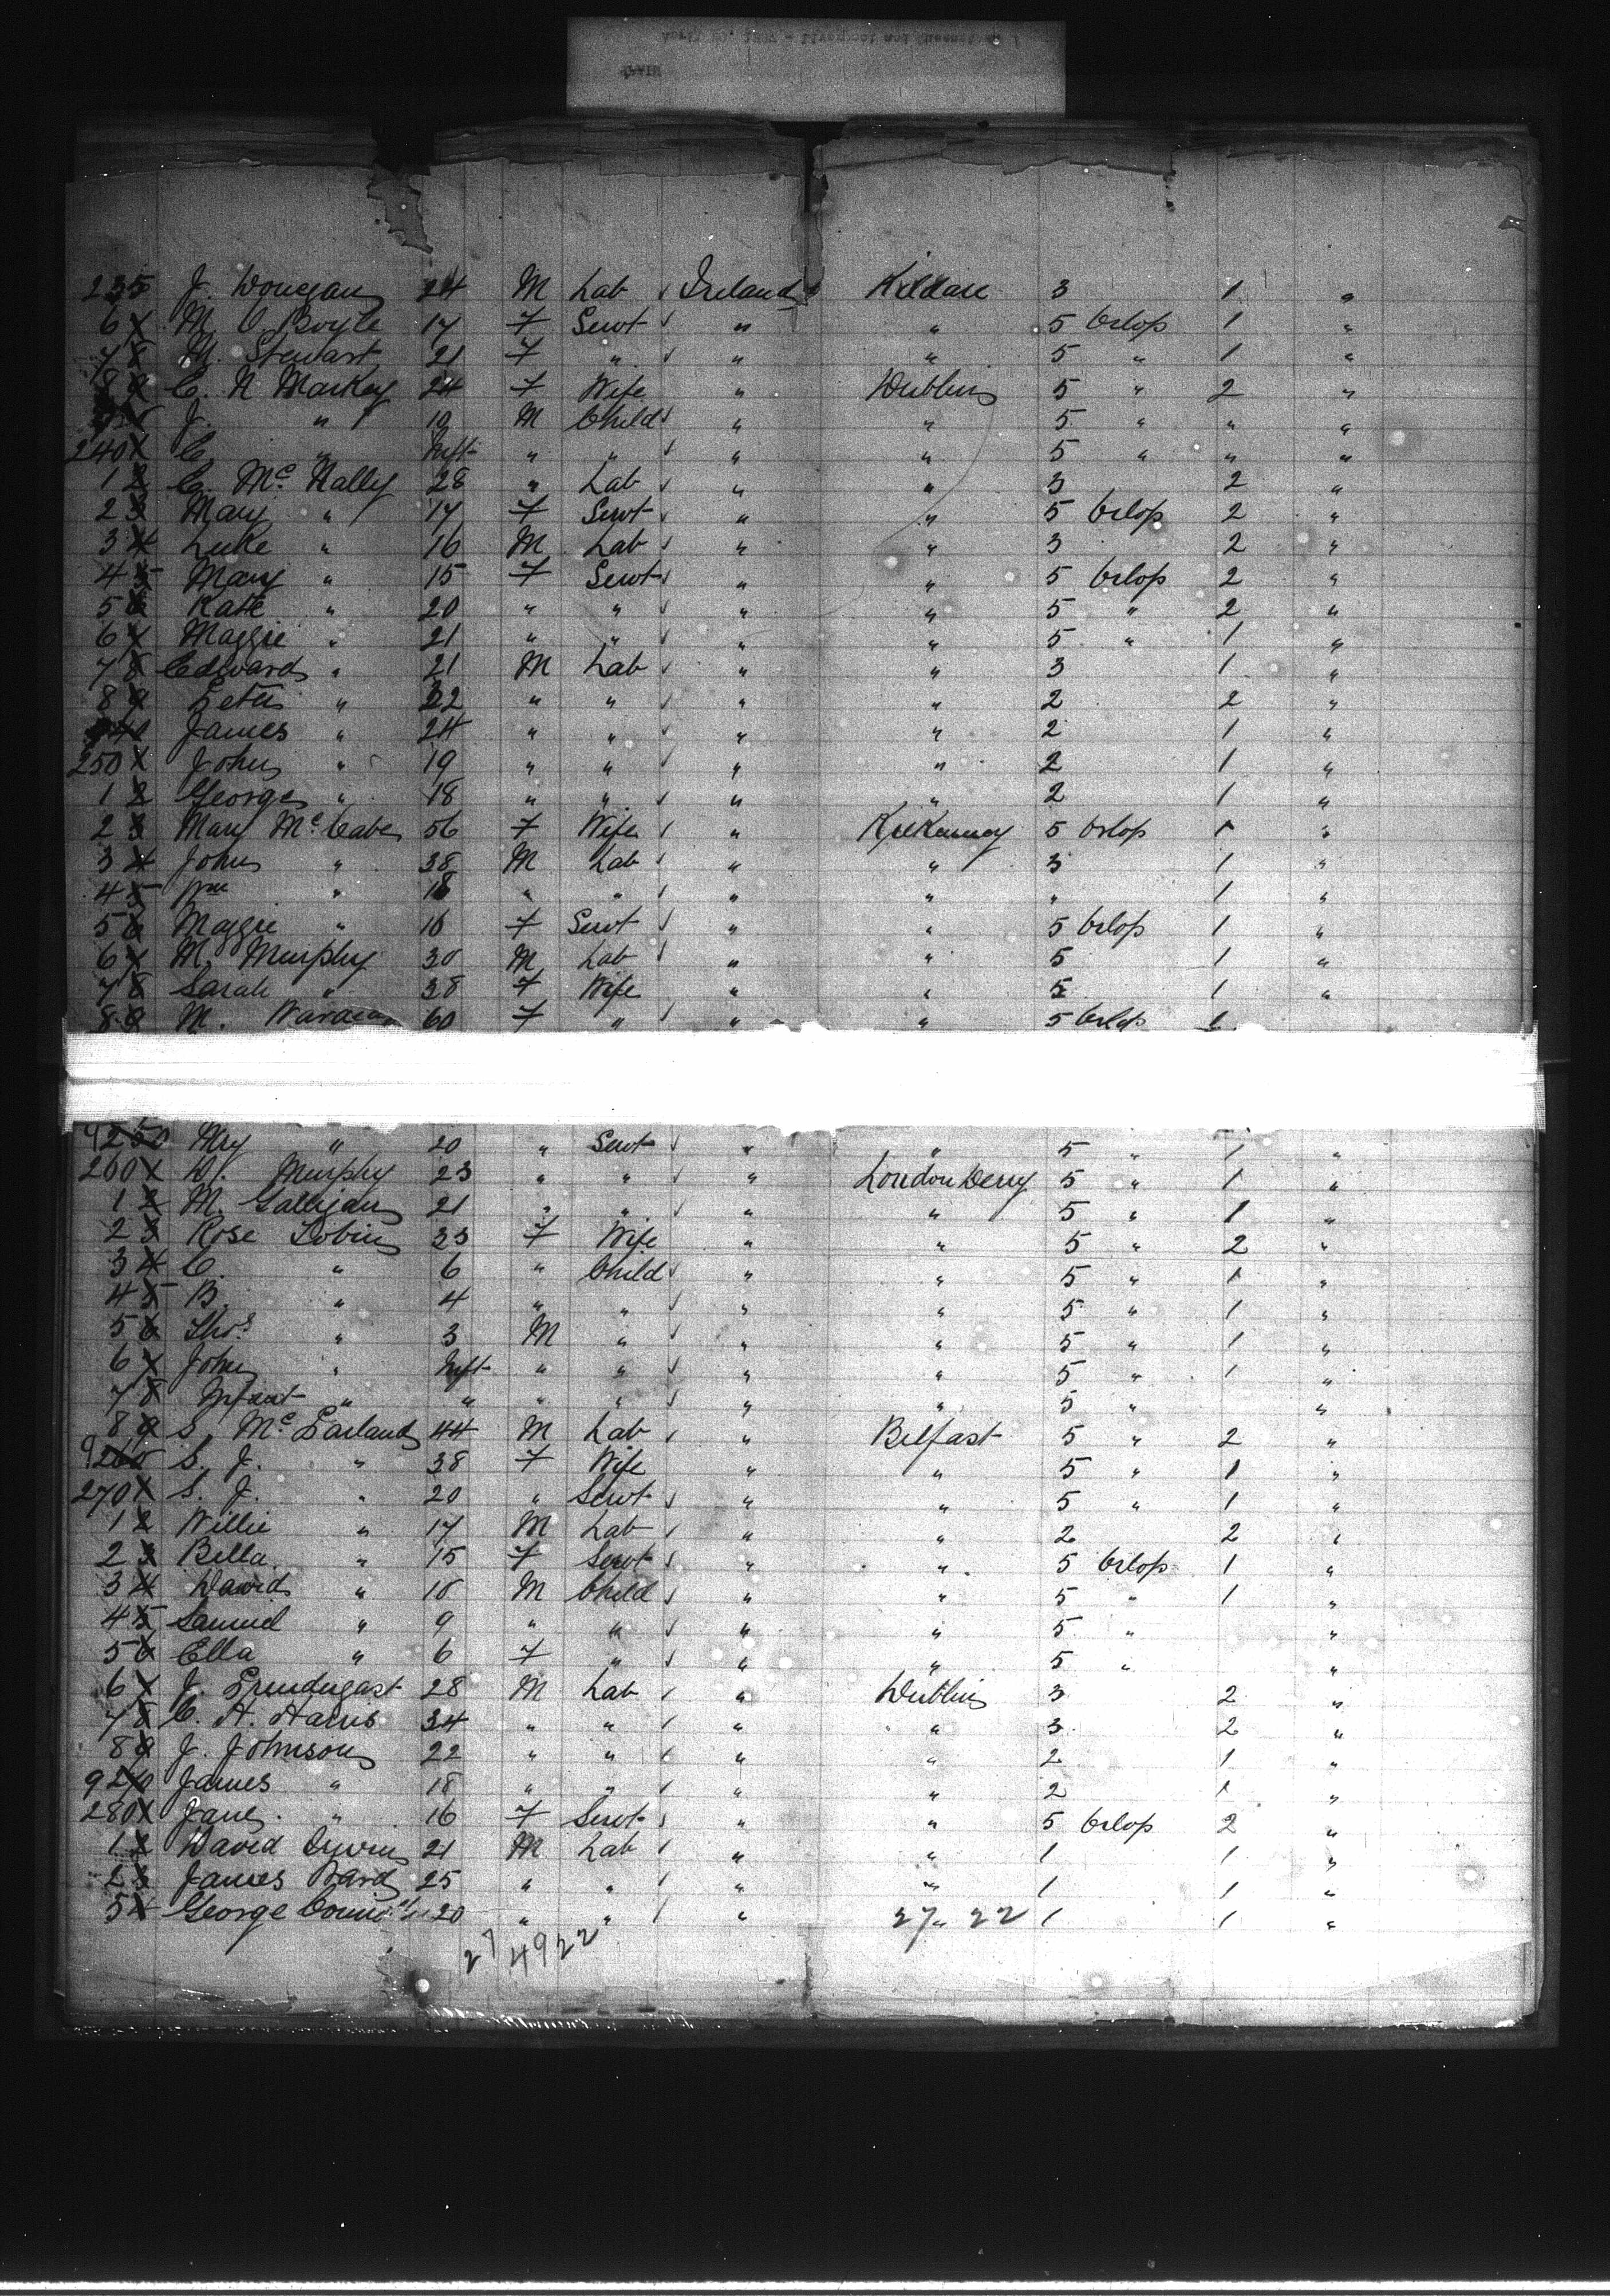 235 J. Donegan 24 M Lab Ireland Kildare 3 1 "
6 M. O. Boyle 17 F Servt " " 5 Orlop 1 "
7 M. Stewart 21 F " " " 5 " 1 "
8 C. N Markey 24 F Wife " Dublin 5 " 2 "
J. " 10 M Child " " 5 " " "
240 C. " Inft " " " " 5 " " "
1 C. McNally 28 " Lab " " 3 2 "
2 Mary " 17 F Servt " " 5 Orlop 2 "
3 Luke " 16 M Lab " " 3 2 "
4 Mary " 15 F Servt " " 5 Orlop 2 "
5 Kate " 20 " " " " 5 " 2 "
6 Maggie " 21 " " " " 5 " 1 "
7 Edward " 21 M Lab " " 3 1 "
8 Peter " 22 " " " " 2 2 "
James " 24 " " " " 2 1 "
250 John " 19 " " " " 2 1 "
1 George " 18 " " " " 2 1 "
2 Mary McCabe 56 F Wife " Kilkenny 5 Orlop 1 "
3 John " 38 M Lab " " 3 1 "
4 Wm " 18 " " " " " 1 "
5 Maggie " 16 F Servt " " 5 Orlop 1 "
6 M. Murphy 30 M Lab " " 5 1 "
7 Sarah " 38 F Wife " " 5 1 "
8 M. 60 F " " " 5 Orlop 1
9 Mry " 20 " Servt " " 5 " 1 "
260 D. Murphy 23 " " " London Derry 5 " 1 "
1 M. Galligan 21 " " " " 5 " 1 "
2 Rose Tobin 33 F Wife " " 5 " 2 "
3 C. " 6 " Child " " 5 " 1 "
4 B. " 4 " " " " 5 " 1 "
5 Thos " 3 M " " " 5 " 1 "
6 John " Inft " " " " 5 " 1 "
7 Infant " " " " " " 5 " "
8 S. McParland 44 M Lab " Belfast 5 " 2 "
9 S. J. " 38 F Wife " " 5 " 1 "
270 S. J. " 20 " Servt " " 5 " 1 "
1 Willie " 17 M Lab " " 2 2 "
2 Bella " 15 F Servt " " 5 Orlop 1 "
3 David " 10 M Child " " 5 " 1 "
4 Samuel " 9 " " " " 5 " "
5 Ella " 6 F " " " 5 " "
6 J. Prendergast 28 M Lab " Dublin 3 2 "
7 C. H. Harris 34 " " " " 3 2 "
8 J. Johnson 22 " " " " 2 1 "
9 James " 18 " " " " 2 1 "
280 Jane " 16 F Servt " " 5 Orlop 2 "
1 David Irwin 21 M Lab " " 1 1 "
2 James Ward 25 " " " " 1 1 "
George 20 " " " " 1 1 "
27 22
27 4922